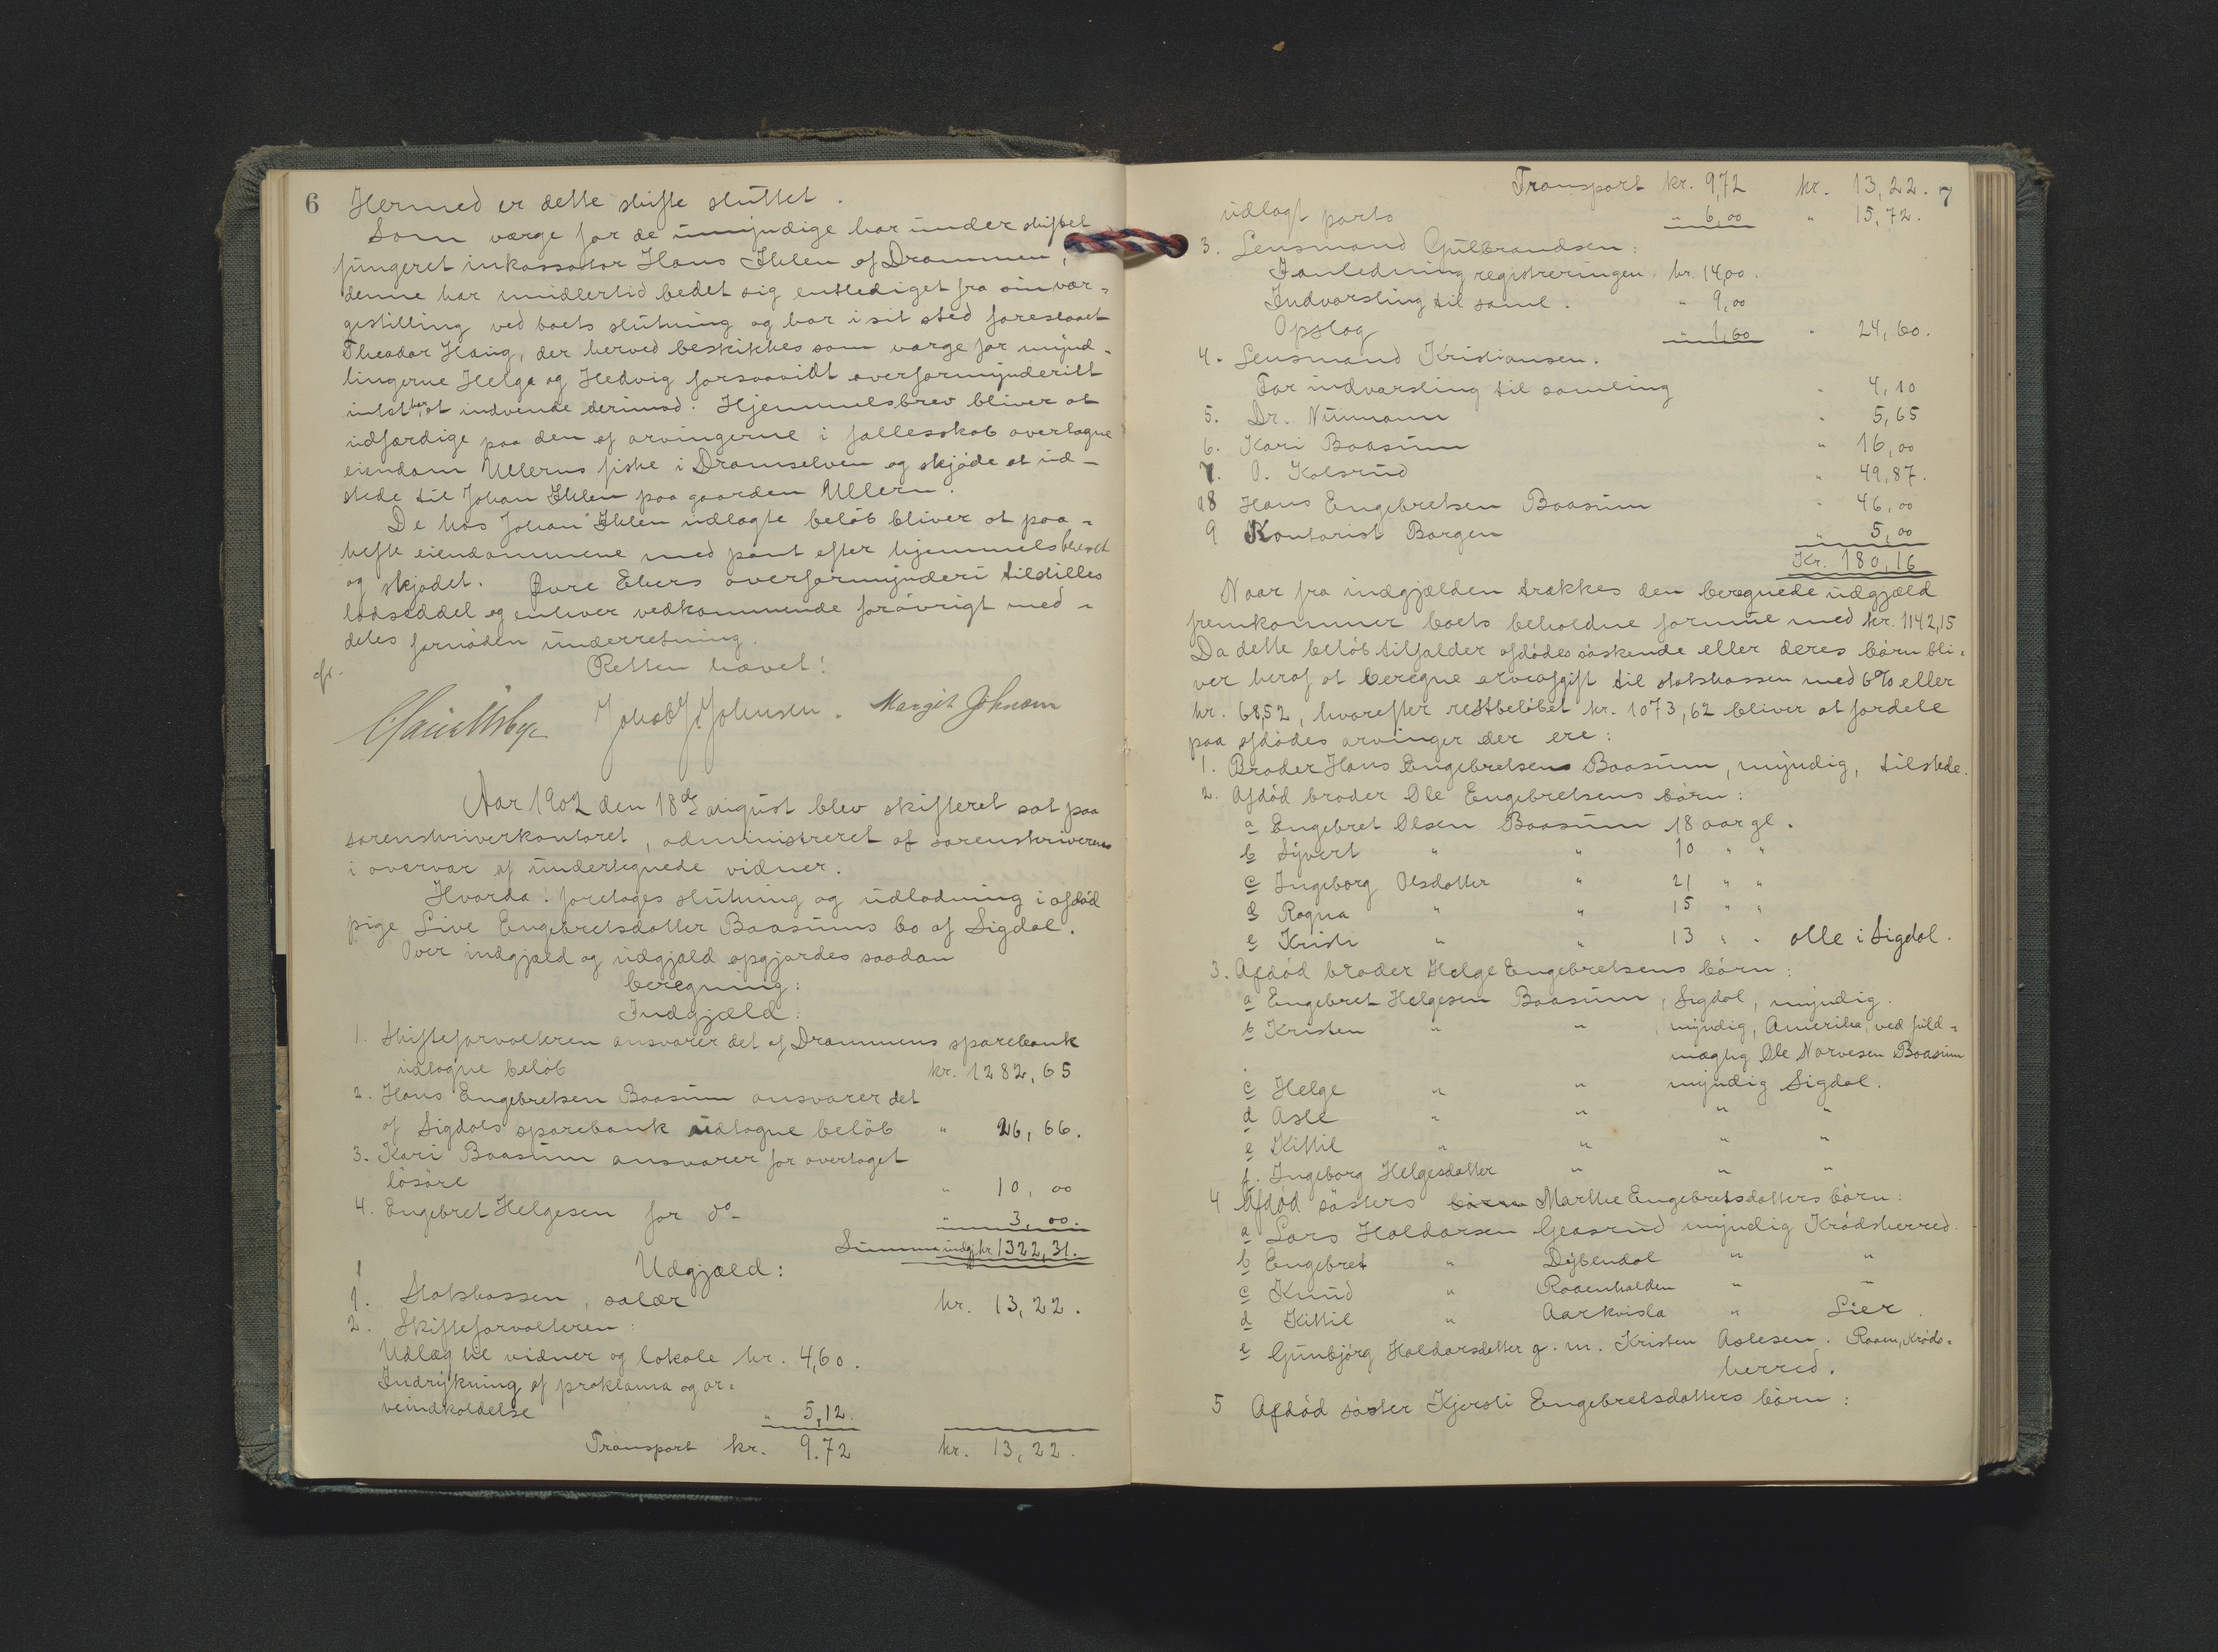 6
Hermed er dette skifte sluttet.
Som værge for de umyndige har under skiftet
fungeret inkassator Hans Ihlen af Drammen,
denne har imidlertid bedet sig entlediget fra sin vær-
gestilling ved boets slutning og har i sit sted foreslaaet
Theodor Haug, der herved beskikkes som værge for mynd-
lingerne Helga og Hedvig forsaavidt overformynderiet
intet har at indvende derimod. Hjemmelsbrev bliver at
udfærdige paa den af arvingerne i fællesskab overtagne
eiendom Ullerns fiske i Dramselven og skjøde at ud-
stede til Johan Ihlen paa gaarden Ullern.
De hos Johan Ihlen udlagte beløb bliver at paa-
hefte eiendommene med pant efter hjemmelsbrevet
og skjødet. Øvre Ekers overformynderi tilstilles
lodseddel og enhver vedkommende forøvrigt med-
deles fornøden underretning.
Retten hævet!
Jakob J. Johnsen. Margit Johnsen
Aar 1902 den 18de august blev skifteret sat paa
sorenskriverkontoret, administreret af sorenskriveren
i overvær af undertegnede vidner.
Hvorda: foretoges slutning og udlodning i afdød
pige Live Engebretsdatter Baasums bo af Sigdal.
Over indgjæld og udgjæld opgjordes saadan
beregning:
Indgjæld:
1. Skifteforvalteren ansvarer det af Drammens sparebank
udtagne beløb kr. 1282,65
2. Hans Engebretsen Baasum ansvarer det
af Sigdals sparebank udtagne beløb " 26,66.
3. Kari Baasum ansvarer for overtaget
løsøre " 10,00
4. Engebret Helgesen for do " 3,00.
Summa indgj. kr 1322,31.
Udgjæld:
1. Statskassen, salær kr. 13,22.
2. Skifteforvalteren:
Udlæg til vidner og lokale kr. 4,60.
Indrykning af proklama og ar-
veindkaldelse " 5,12.
Transport kr. 9.72 kr. 13,22.
7
Transport kr. 9,72 kr. 13,22.
udlagt porto " 6,00 " 15,72.
3. Lensmand Gulbrandsen:
I anledning registreringen kr. 14,00.
Indvarsling til saml. " 9,00
Opslag " 1,60 " 24,60.
4. Lensmand Kristiansen.
For indvarsling til samling " 4,10
5. Dr. Numann " 5,65
6. Kari Baasum " 16,00
7. O. Kolsrud " 49,87.
8 Hans Engebretsen Baasum " 46,00
9 Kontorist Borgen " 5,00
Kr. 180,16
Naar fra indgjælden trækkes den beregnede udgjæld
fremkommer boets beholdne formue med kr. 1142,15
Da dette beløb tilfalder afdødes søskende eller deres børn bli-
ver heraf at beregne arveafgift til statskassen med 6% eller
kr. 68,52, hvorefter restbeløbet kr. 1073,62 bliver at fordele
paa afdødes arvinger der ere:
1. Broder Hans Engebretsens Baasum, myndig, tilstede.
2. Afdød broder Ole Engebretsens børn:
a Engebret Olsen Baasum 18 aar gl.
b Syvert " " 10 " "
c Ingeborg Olsdatter " 21 " "
d Ragna " " 15 " "
e Kristi " " 13 " " alle i Sigdal.
3. Afdød broder Helge Engebretsens børn:
a Engebret Helgesen Baasum, Sigdal, myndig.
b Kristen " " , myndig, Amerika, ved fuld-
mægtig Ole Narvesen Baasum
c Helge " " myndig Sigdal.
d Asle " " " "
e Kittil " " " "
f. Ingeborg Helgesdatter " " "
4 Afdød søsters børn Marthe Engebretsdatters børn:
a Lars Haldorsen Geasrud myndig Krødsherred.
b Engebret " Dybendal " "
c Knud " Raaenhalden " "
d Kittil " Aarkvisla " Lier.
e Gunbjørg Haldorsdatter g. m. Kristen Aslesen. Raaen, Kröds-
herred.
5 Afdød søster Kjersti Engebretsdatters børn: